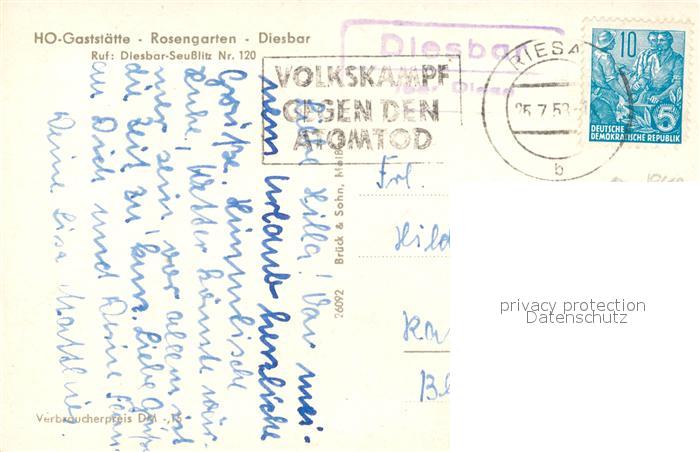 HO-Gaststätte - Rosengarten - Diesbar
Ruf: Diesbar-Seußlitz Nr. 120
Diesbar
über Riesa
VOLKSKAMPF
GEGEN DEN
ATOMTOD
RIESA
25.7.58
b
10
5
DEUTSCHE
DEMOKRATISCHE REPUBLIK
Liebe Hilla! Von mei-
nem Urlaub herzliche
Grüße. Himmlische
Ruhe, Wetter könnte wär-
mer sein, vor allem ist
die Zeit zu kurz. Liebe Grüße
an Dich und Deine
Deine Lisa
26092 Brück & Sohn, Meiß
Frl.
Hild
Ka
Bl
privacy protection
Datenschutz
Verbraucherpreis DM -,15